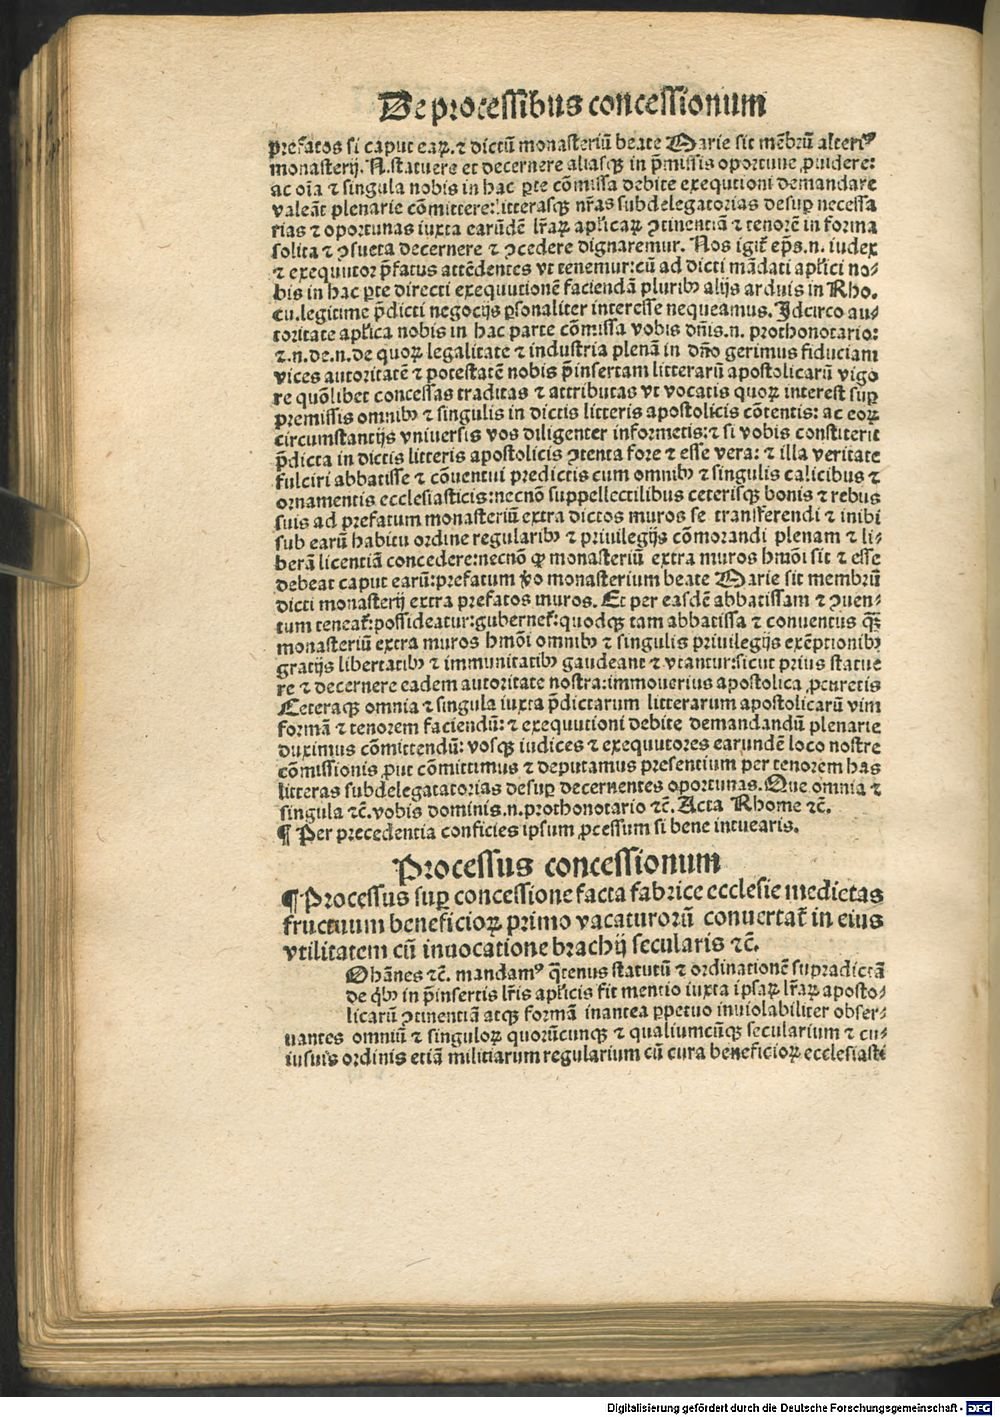 De processibus concessionum
prefatos si caput eaꝝ. ⁊ dictū monasteriū beate Marie sit mēbrū alteriꝰ
monasterij. N. statuere et decernere aliasqꝫ in p̄missis oportune ꝓuidere:
ac oīa ⁊ singula nobis in hac ꝑte cōmissa debite exequtioni demandare
valeāt plenarie cōmittere: litterasqꝫ nr̄as subdelegatorias desuꝑ necessa
rias ⁊ oportunas iuxta earūdē lr̄aꝝ apl̓icaꝝ ꝯtinentiā ⁊ tenorē in forma
solita ⁊ ꝯsueta decernere ⁊ ꝯcedere dignaremur. Nos igit̄ ep̄s .n. iudex
⁊ exequutor p̄fatus attēdentes vt tenemur: cū ad dicti mādati apl̓ici no-
bis in hac ꝑte directi exequutionē faciendā pluribꝰ alijs arduis in Rho.
cu. legitime p̄dicti negocijs ꝑsonaliter interesse nequeamus. Idcirco au-
toritate apl̓ica nobis in hac parte cōmissa vobis dn̄is .n. prothonotario:
⁊ .n. de .n. de quoꝝ legalitate ⁊ industria plenā in dn̄o gerimus fiduciam
vices autoritatē ⁊ potestatē nobis p̄insertam litterarū apostolicarū vigo
re quōlibet concessas traditas ⁊ attributas vt vocatis quoꝝ interest suꝑ
premissis omnibꝫ ⁊ singulis in dictis litteris apostolicis cōtentis: ac eoꝝ
circumstantijs vniuersis vos diligenter informetis: ⁊ si vobis constiterit
p̄dicta in dictis litteris apostolicis ꝯtenta fore ⁊ esse vera: ⁊ illa veritate
fulciri abbatisse ⁊ cōuentui predictis cum omnibꝫ ⁊ singulis calicibus ⁊
ornamentis ecclesiasticis: necnō suppellectilibus ceterisqꝫ bonis ⁊ rebus
suis ad prefatum monasteriū extra dictos muros se transferendi ⁊ inibi
sub earū habitu ordine regularibꝫ ⁊ priuilegijs cōmorandi plenam ⁊ li-
berā licentiā concedere: necnō ꝙ monasteriū extra muros hmōi sit ⁊ esse
debeat caput earū: prefatum v̓o monasterium beate Marie sit membrū
dicti monasterij extra prefatos muros. Et per easdē abbatissam ⁊ ꝯuen-
tum teneat̄: possideatur: gubernet̄: quodqꝫ tam abbatissa ⁊ conuentus qꝫ
monasteriū extra muros hmōi omnibꝫ ⁊ singulis priuilegijs exēptionibꝫ
gratijs libertatibꝫ ⁊ immunitatibꝫ gaudeant ⁊ vtantur: sicut prius statue
re ⁊ decernere eadem autoritate nostra: immouerius apostolica ꝓcuretis
Ceteraqꝫ omnia ⁊ singula iuxta p̄dictarum litterarum apostolicarū vim
formā ⁊ tenorem faciendū: ⁊ exequutioni debite demandandū plenarie
duximus cōmittendū: vosqꝫ iudices ⁊ exequutores earundē loco nostre
cōmissionis ꝓut cōmittimus ⁊ deputamus presentium per tenorem has
litteras subdelegatatorias desuꝑ decernentes oportunas. Que omnia ⁊
singula ⁊c̄. vobis dominis .n. prothonotario ⁊c̄. Acta Rhome ⁊c̄.
¶ Per precedentia conficies ipsum ꝓcessum si bene intuearis.
Processus concessionum
¶ Processus suꝑ concessione facta fabrice ecclesie medietas
fructuum beneficioꝝ primo vacaturorū conuertat̄ in eius
vtilitatem cū inuocatione brachij secularis ⁊c̄.
Ohānes ⁊c̄. mandamꝰ q̄tenus statutū ⁊ ordinationē supradictā
de qibꝫ in p̄insertis lr̄is apl̓icis fit mentio iuxta ipsaꝝ lr̄aꝝ aposto-
licarū ꝯtinentiā atqꝫ formā inantea ꝑpetuo inuiolabiliter obser-
uantes omniū ⁊ singuloꝝ quorūcunqꝫ ⁊ qualiumcūqꝫ secularium ⁊ cu-
iusuis ordinis etiā militiarum regularium cū cura beneficioꝝ ecclesiasti
Digitalisierung gefördert durch die Deutsche Forschungsgemeinschaft - DFG